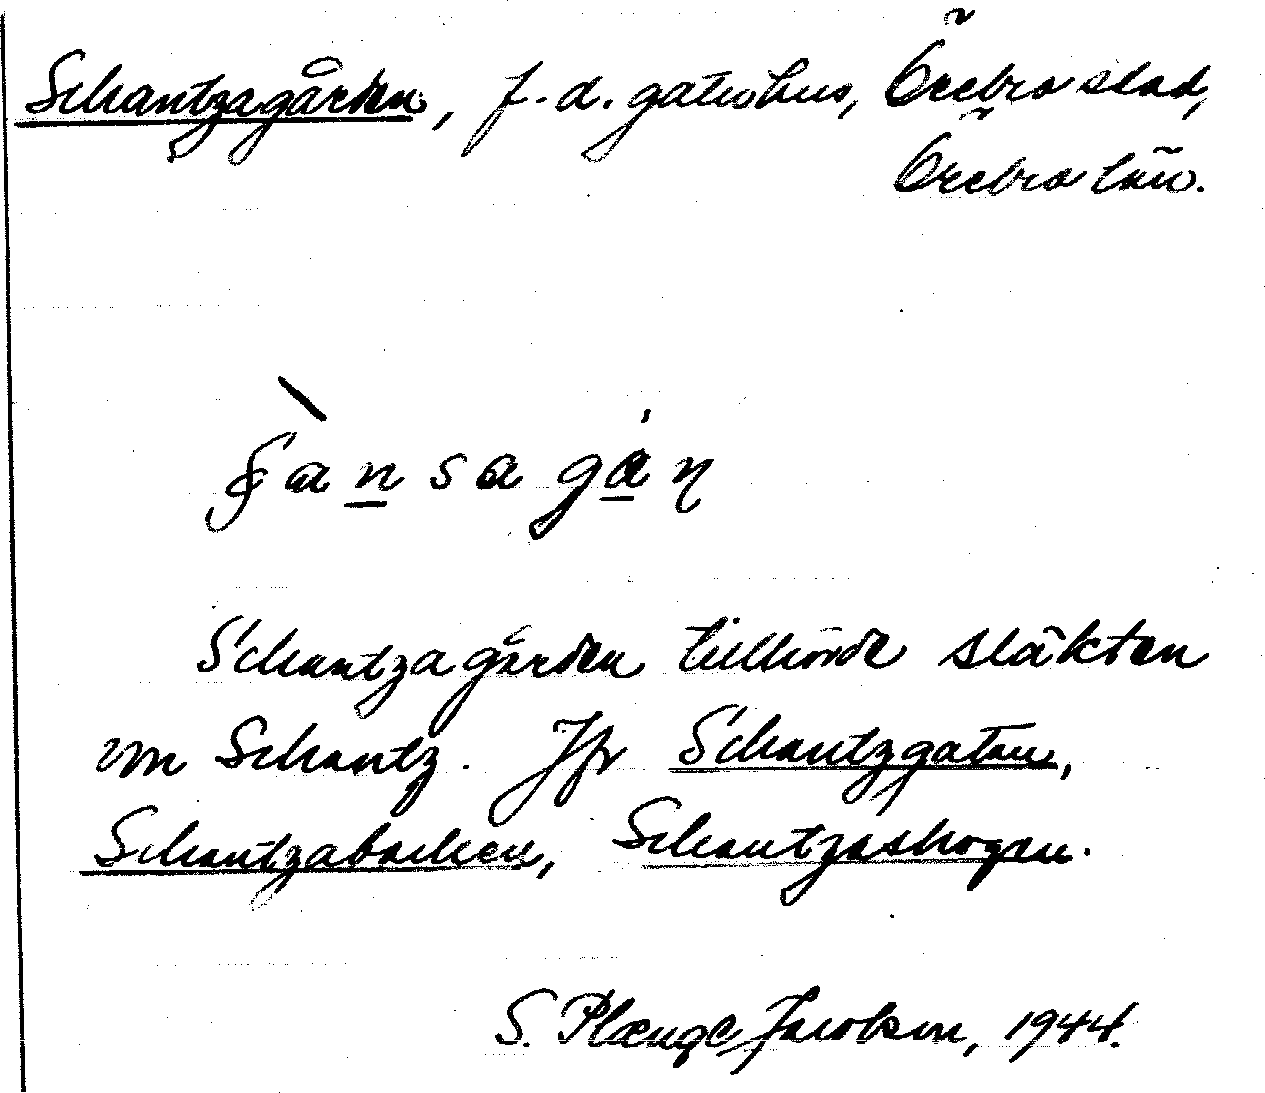 Schantzagården, f.d. gatuhus, Örebro stad,
Örebro län.
Schantzagården tillhörde släkten
von Schantz. Jfr Schantzgatan,
Schantzabacken, Schantzaskogen.
S. Plænge Jacobson, 1944.